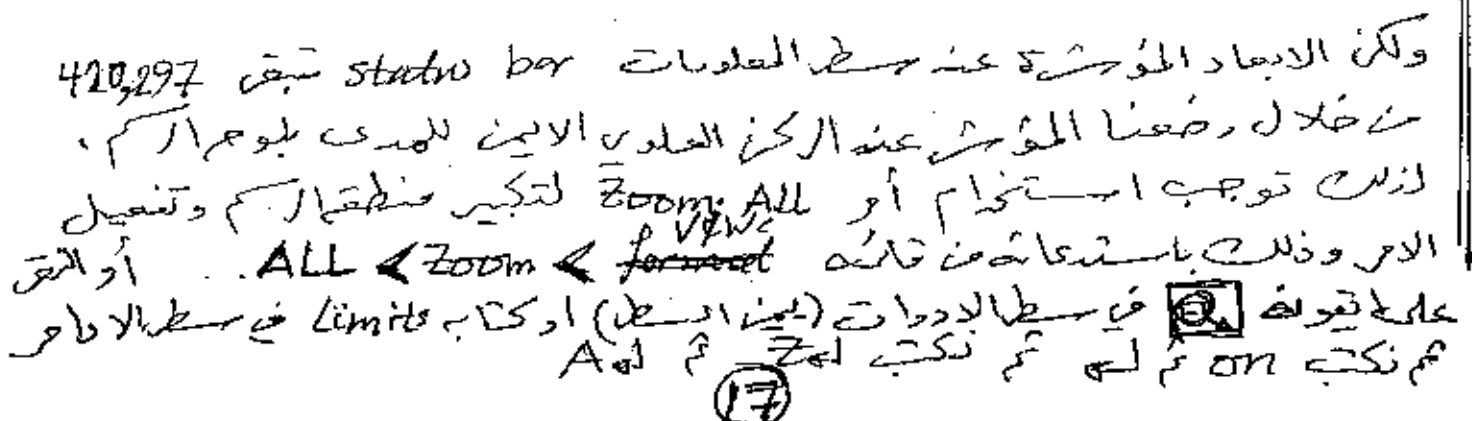 ولكن الابعاد المؤشرة عند سطر المعلومات status bar تبقى 420,297
من خلال وضعنا المؤشر عند الركن العلوي الايمن للمدى بلوحة الرسم.
لذلك توجب استخدام أمر Zoom, All لتكبير منطقة الرسم وتفعيل
الامر وذلك باستدعائه من قائمة View < Zoom < ALL .. أو النقر
على ايقونة في سطر الادوات (يمين السطر) او كتابه Limits في سطر الاوامر
ثم نكتب on ثم ↵ ثم نكتب Z↵ ثم A↵
17